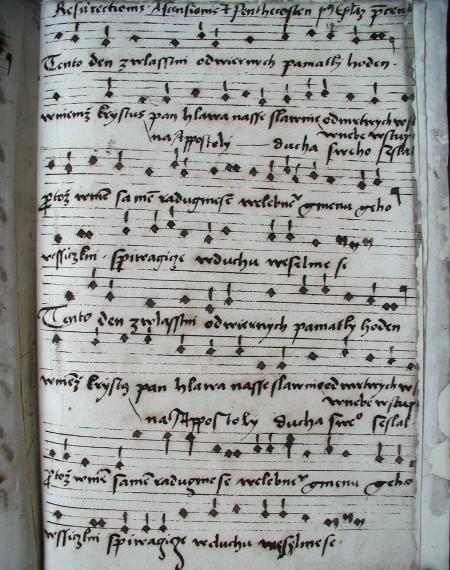 Resurectionis Ascensionis et Penthecosten
Tento den zwlasstni odwiernych pamatky hoden
wniemz krystus pan hlawa nasse slawnie odmrtwych ws
wnebe wstup
na Appostoly ducha sweho seslal
protoz wniem samem radugmese welebne gmenu geho
wssickni spiwagicze wduchu weselme se
Tento den zwlasstni odwiernych pamatky hoden
wniemz krystus pan hlawa nasse slawnie odmrtwych ws
wnebe wstup
na Appostoly ducha sweo seslal
protoz wniem samem radugmese welebne gmenu geho
wssickni spiwagicze wduchu weselmese